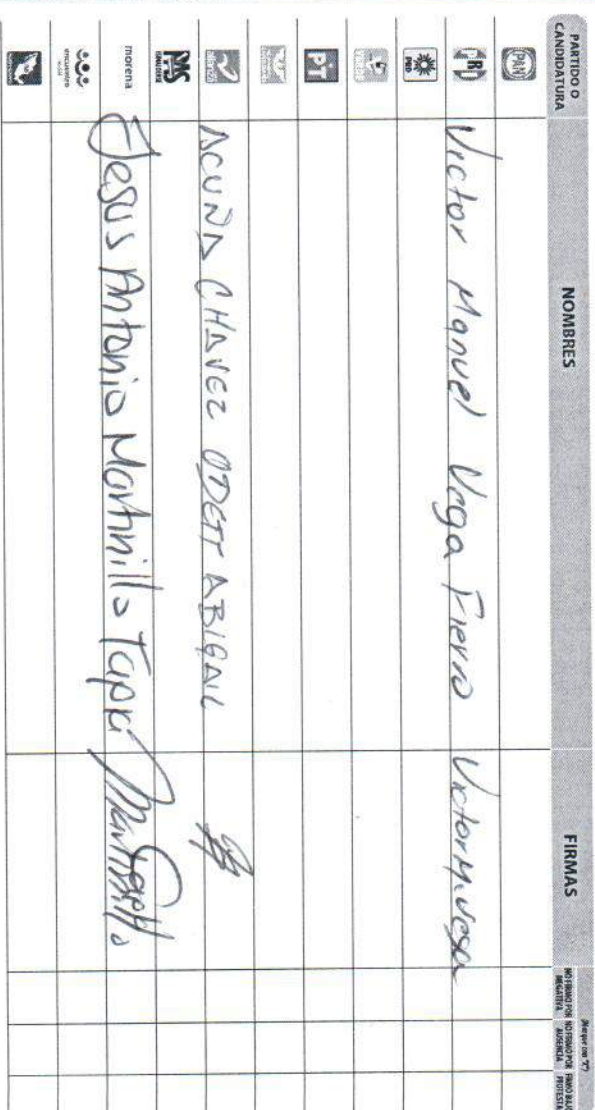 PARTIDO O CANDIDATURA
NOMBRES
FIRMAS
(Marque con "X")
NO FIRMO POR NEGATIVA
NO FIRMO POR AUSENCIA
FIRMO BAJO PROTESTA
PAN
PRI
Victor Manuel Vega Fierro Victor M. Vega
PRD
VERDE
PT
alianza
ACUÑA CHAVEZ ODETT ABIGAIL
morena
Jesus Antonio Martinillo Tapia
encuentro social